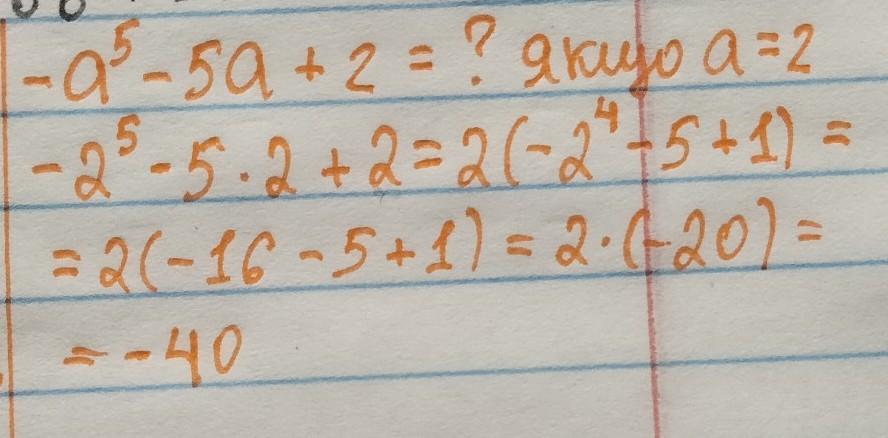 -a⁵ - 5a + 2 = ? якщо a = 2
-2⁵ - 5 · 2 + 2 = 2(-2⁴ - 5 + 1) =
= 2(-16 - 5 + 1) = 2 · (-20) =
= -40